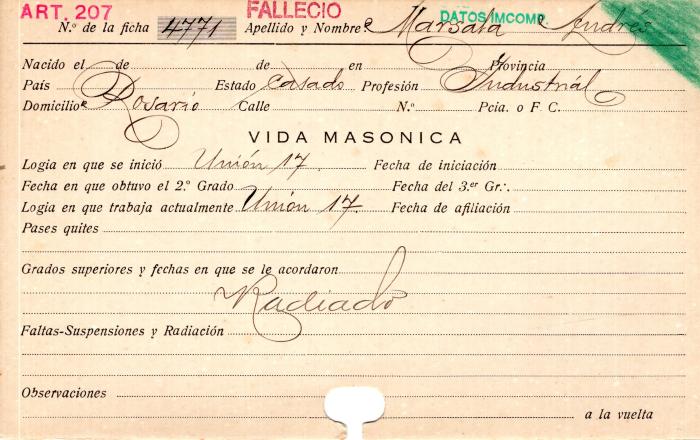 ART. 207 FALLECIO DATOS IMCOMP.
N.º de la ficha 4771 Apellido y Nombre Marsala Andrés
Nacido el de de en Provincia
País Estado Casado Profesión Industrial
Domicilio Rosario Calle N.º Pcia. o F. C.
VIDA MASONICA
Logia en que se inició Unión 17. Fecha de iniciación
Fecha en que obtuvo el 2.º Grado Fecha del 3.er Gr:.
Logia en que trabaja actualmente Unión 17. Fecha de afiliación
Pases quites
Grados superiores y fechas en que se le acordaron
Radiado
Faltas-Suspensiones y Radiación
Observaciones
a la vuelta